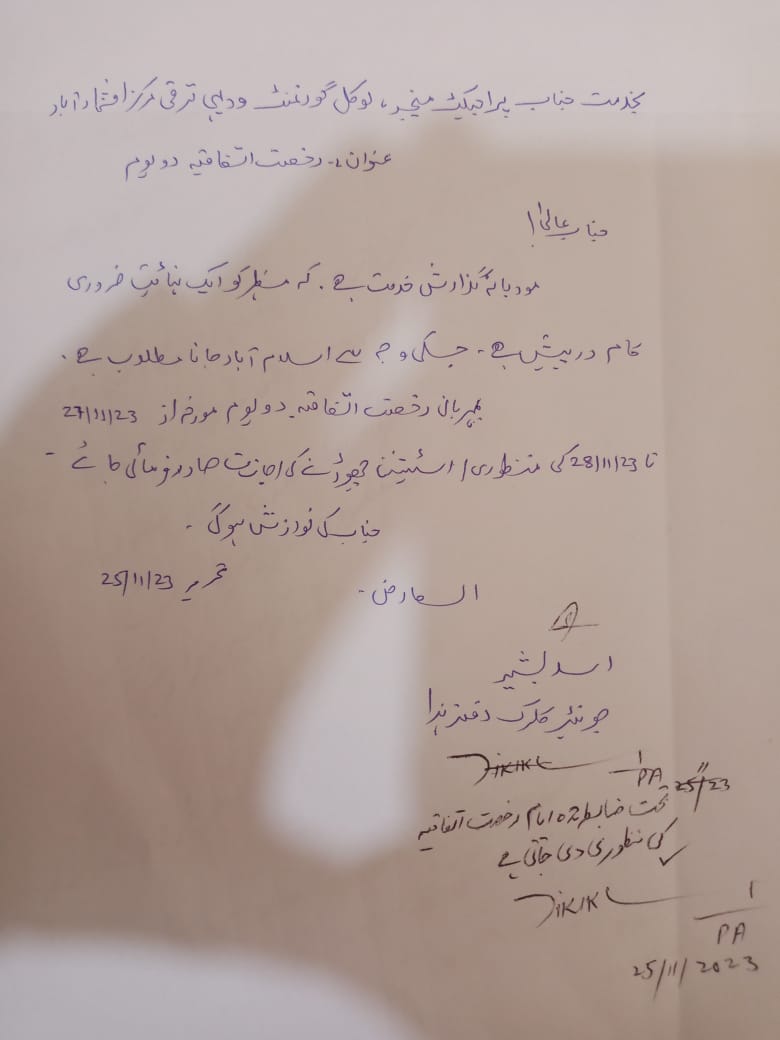 بخدمت جناب پراجیکٹ منیجر، لوکل گورنمنٹ و دیہی ترقی مرکز افتخارآباد
عنوان:۔ رخصت اتفاقیہ دو یوم
جناب عالیٰ!
مودبانہ گذارش خدمت ہے۔ کہ مظہر کو ایک نہائت ضروری
کام درپیش ہے۔ جسکی وجہ سے اسلام آباد جانا مطلوب ہے۔
بمہربانی رخصت اتفاقیہ دو یوم مورخہ از 27/11/23
تا 28/11/23 کی منظوری / اسٹیشن چھوڑنے کی اجازت صادر فرمائی جائے۔
جناب کی نوازش ہوگی۔
تحریر 25/11/23
العارض۔
اسد بشیر
جونئیر کلرک دفتر ہذا
PA 25/11/23
تحت ضابطہ رخصت اتفاقیہ
کی منظوری دی جاتی ہے
PA
25/11/2023